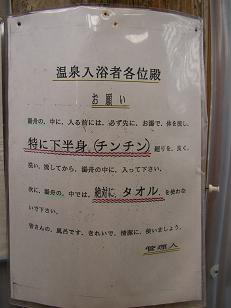 温泉入浴者各位殿
お願い
湯舟の、中に、入る前には、必ず先に、お湯で、体を流し、
特に下半身、(チンチン)廻りを、良く、
洗い、流してから、湯舟の中に、入って下さい。
次に、湯舟の、中では、絶対に、タオル、を使わな
いで下さい。
皆さんの、風呂です。きれいで、清潔に、使いましょう。
管理人